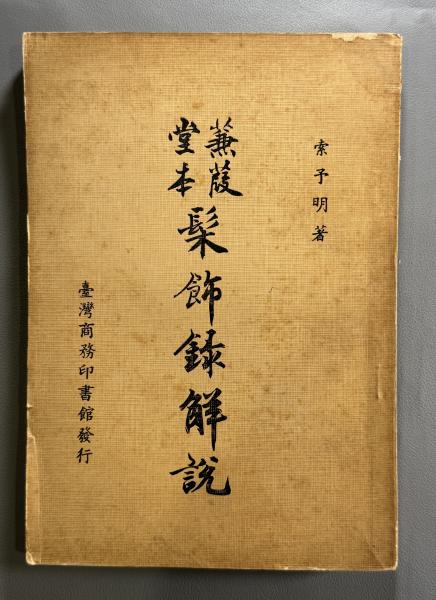 索予明著
蒹葭
堂本
髹飾錄解說
臺灣商務印書館發行